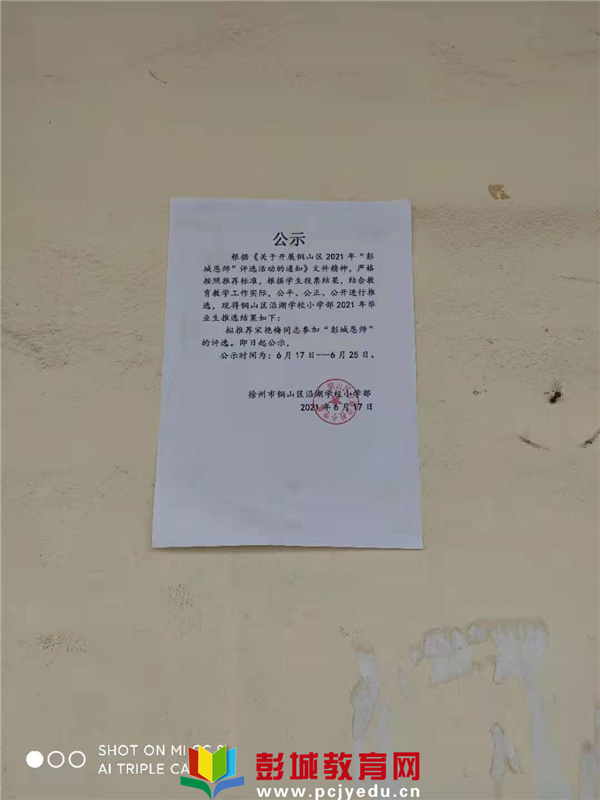 公示
根据《关于开展铜山区2021年“彭
城恩师”评选活动的通知》文件精神，严格
按照推荐标准，根据学生投票结果，结合教
育教学工作实际，公平、公正、公开进行推
选，现将铜山区沿湖学校小学部2021年毕
业生推选结果如下：
拟推荐宋艳梅同志参加“彭城恩师”
的评选。即日起公示。
公示时间为：6月17日——6月25日。
徐州市铜山区沿湖学校小学部
2021年6月17日
SHOT ON MI
AI TRIPLE CA
彭城教育网
www.pcjyedu.cn